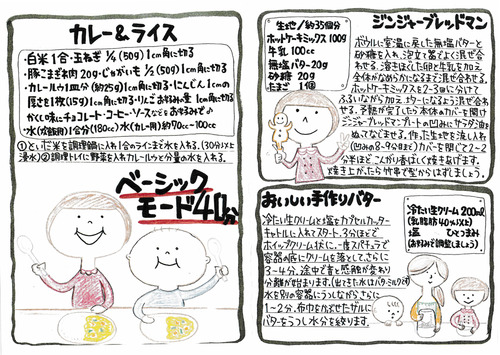 カレー&ライス
・白米1合・玉ねぎ1/4(50g)1cm角に切る
・豚こま肉20g・じゃがいも1/2(50g)1cm角に切る
・カレールウ1皿分(約25g)1cm角に切る・にんじん1cmの
厚さを1枚(15g)1cm角に切る・りんごお好みの量1cm角に切る
かくし味にチョコレート・コーヒー・ソースなどをお好みで♪
・水(炊飯用)1合分(180cc)・水(カレー用)約90cc~100cc
①といだ米を調理鍋に入れ1合のラインまで水を入れる。(30分以上
浸水)②調理トレイに野菜を入れカレールウと分量の水を入れる。
ベーシック
モード40分
生地/約35個分
ホットケーキミックス100g
牛乳 100cc
無塩バター20g
砂糖 20g
たまご 1個
ジンジャーブレッドマン
ボウルに室温に戻した無塩バターと
砂糖を入れ、泡立て器でよく混ぜ合
わせる。溶きほぐした卵と牛乳を加え
全体がなめらかになるまで混ぜ合わせる。
ホットケーキミックスを2~3回に分けて
ふるいながら加えこなっぽさがなくなるように混ぜ合わ
せる。予熱が完了したら本体のカバーを開け
ジンジャーブレッドマンプレートの凹みにサラダ油を
ぬってなじませる。作った生地を流し入れ
(凹みの8~9分目まで)カバーを閉じて2~2
分半ほど、こんがり香ばしく焼きあげます。
焼き上がったら竹串で型からはずしましょう。
おいしい手作りバター
冷たい生クリームと塩をカプセルカッター
キャトルに入れてスタート。3分ほどで
ホイップクリーム状に、一度スパチュラで
容器の底にクリームを落としてさらに
3~4分。途中で音と感触が変わり
分離が始まります。(出てきた水はバターミルクです)
水を別の容器にうつしながらさらに
1~2分。布巾をかぶせたザルに
バターをうつし水分を絞ります。
冷たい生クリーム200ml
(乳脂肪40%以上)
塩 ひとつまみ
(お好みで調整しましょう)